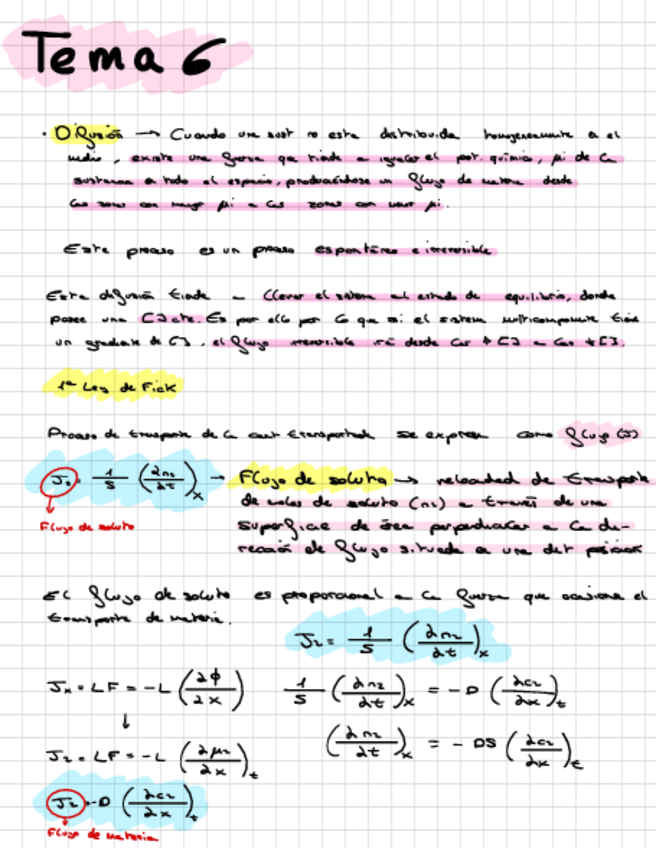 Tema 6
· Difusión → Cuando una sust no esta distribuida homogeneamente en el
medio, existe una fuerza que tiende a igualar el pot. químico, μi de la
sustancia en todo el espacio, produciéndose un flujo de materia desde
las zonas con mayor μi a las zonas con menor μi.
Este proceso es un proceso espontáneo e irreversible
Esta difusión tiende a llevar el sistema al estado de equilibrio, donde
posee una [ ] cte. Es por ello por lo que si el sistema multicomponente tiene
un gradiente de [ ], el flujo irreversible irá desde las ↑ [ ] a las ↓ [ ].
1ª Ley de Fick
Proceso de transporte de la sust transportada se expresa como flujo (J)
J₂ = 1/S (∂n₂/∂t)x → Flujo de soluto → velocidad de transporte
de moles de soluto (n₂) a través de una
Flujo de soluto
superficie de área perpendicular a la di-
rección de flujo situada en una det posición
El flujo de soluto es proporcional a la fuerza que ocasiona el
transporte de materia.
J₂ = 1/S (∂n₂/∂t)x
Jx = LF = -L (∂ϕ/∂x)
1/S (∂n₂/∂t)x = -D (∂c₂/∂x)t
↓
J₂ = LF = -L (∂μ₂/∂x)t
(∂n₂/∂t)x = -DS (∂c₂/∂x)t
J₂ = -D (∂c₂/∂x)t
Flujo de materia